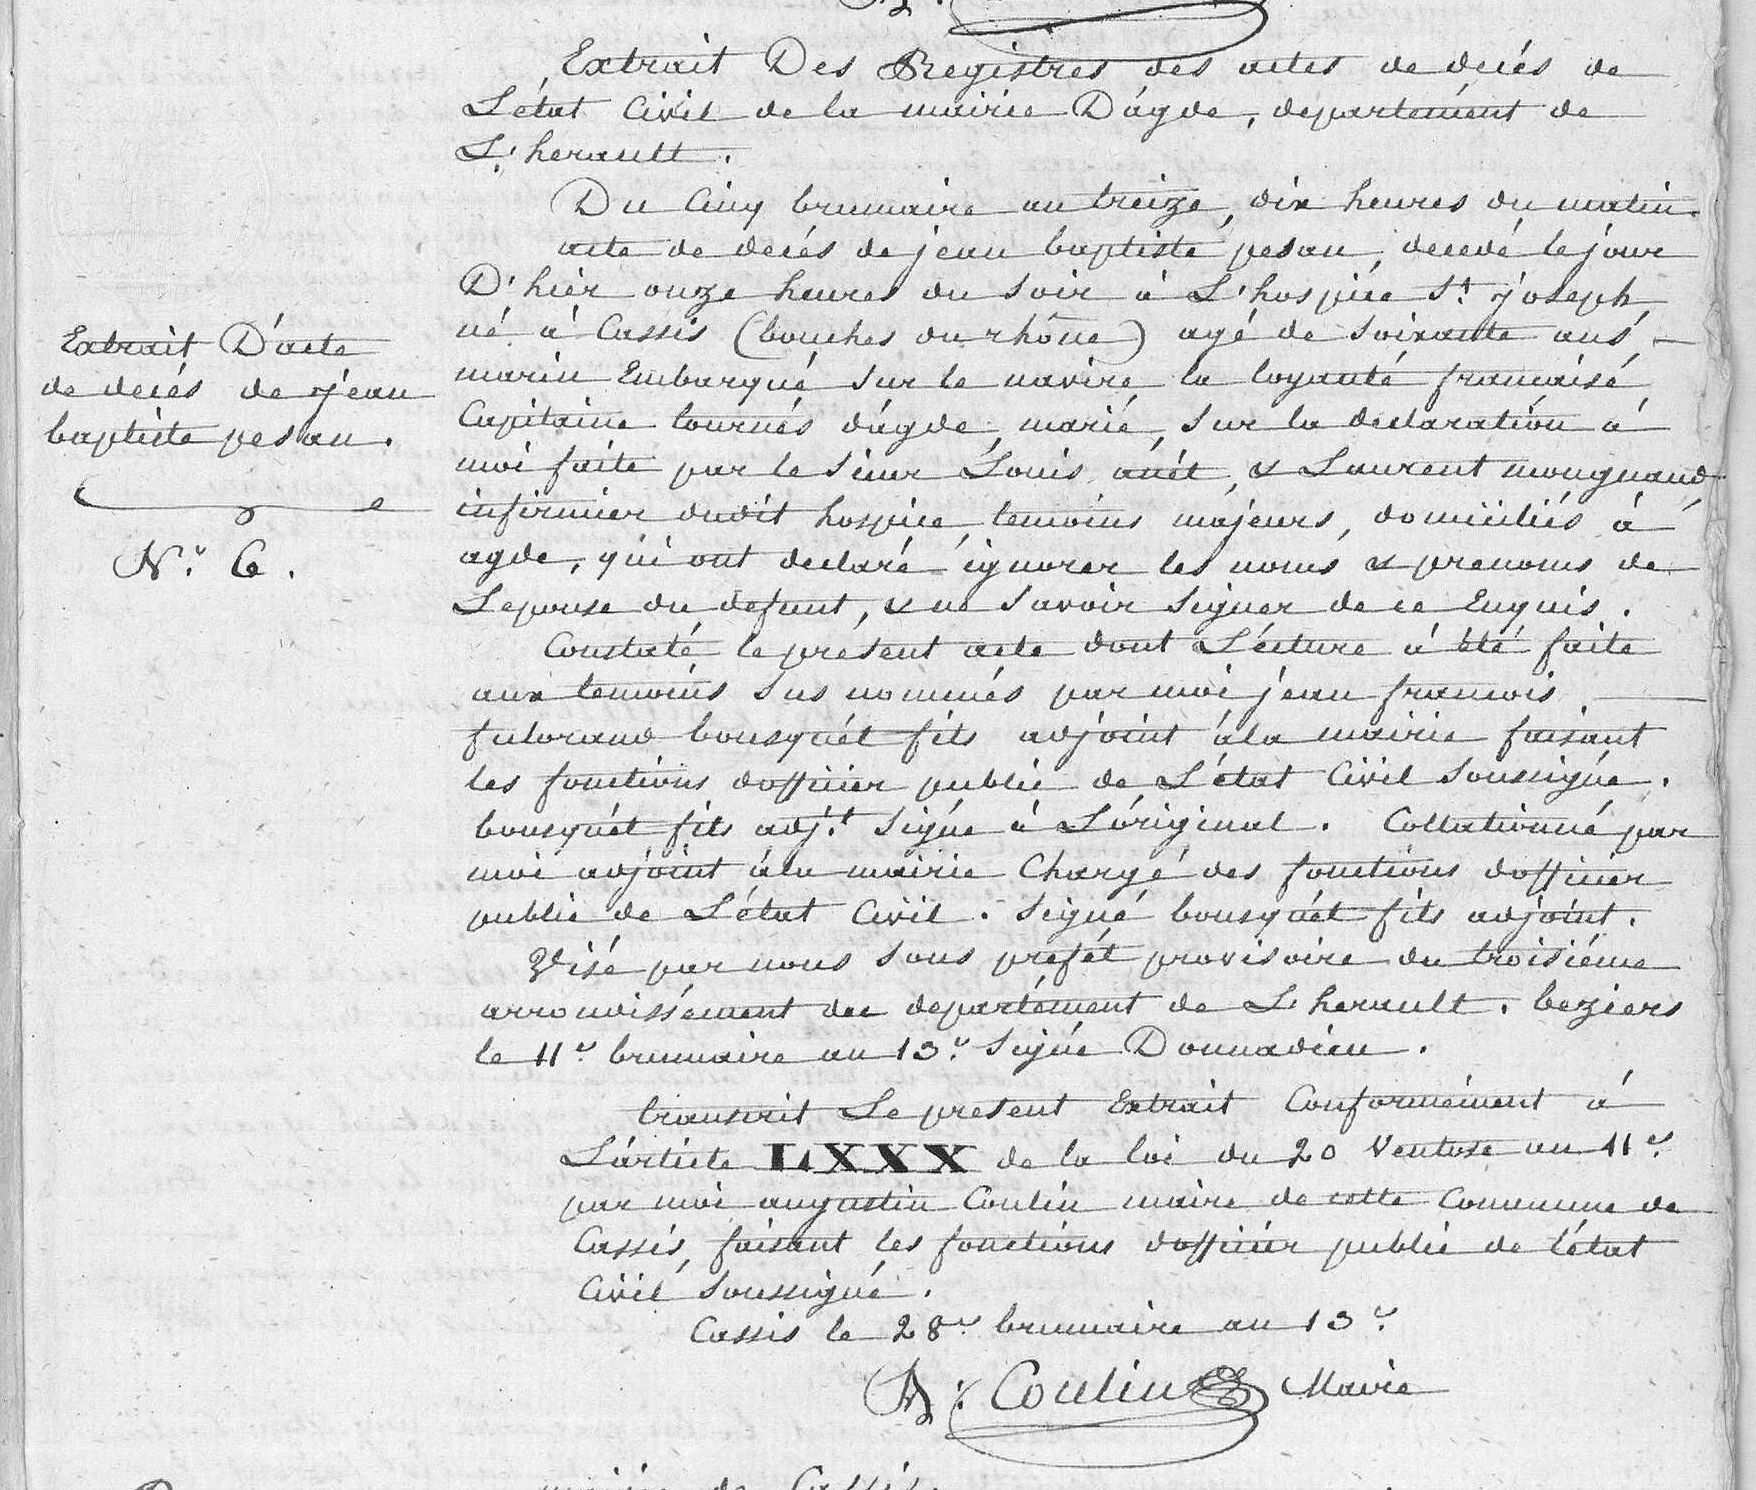 Extrait Des Registres des actes de decés de
L'état Civil de la mairie D'agde, departement de
L'herault.
Du Cinq brumaire an treize, dix heures du matin.
acte de decés de jean baptiste pesan, decedé le jour
D'hier onze heures du soir à L'hospice St. joseph
né à Cassis (bouches du rhône) agé de soixante ans
marin Embarqué sur le navire la loyauté francaise
Capitaine tournés d'agde, marié, sur la declaration à
moi faite par le sieur Louis & Laurent
infirmier dudit hospice, temoins majeurs, domiciliés à
agde, qui ont declaré ignorer les noms & prenoms de
L'epouse du defunt, & ne savoir signer de ce Enquis.
Constaté le présent acte dont Lécture à été faite
aux temoins sus nommés par moi jean francois
fulcrand bousquét fils adjoint àla mairie faisant
les fonctions dofficier public de L'état Civil soussigné.
bousquét fils adj.t signé à L'original. Collationné par
moi adjoint àla mairie Chargé des fonctions dofficier
public de L'état Civil. signé bousquét fils adjoint.
Visé par nous sous prefét provisoire du troisiéme
arrondissement du departément de L'herault. beziers
le 11e brumaire an 13e. signé Donnadieu.
transcrit Le present Extrait Conformément à
L'article LXXX de la loi du 20 Ventose an 11e.
par moi augustin Coulin maire de cette Commune de
Cassis, faisant les fonctions dofficier public de l'état
Civil soussigné.
Cassis le 28e. brumaire an 13e.
A: Coulin Maire
Extrait D'acte
de decés de jean
baptiste pesan.
N.e 6.
mairie de Cassis.